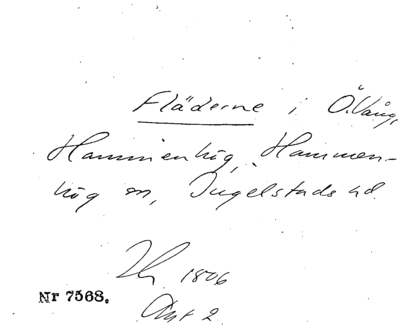 Fläderne i Ö. Vång,
Hammenhög, Hammen-
hög sn, Ingelstads hd.
1806
Nr 7568.
Akt 2